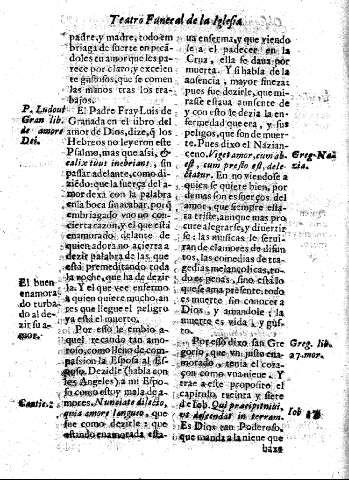 Teatro Funeral de la Iglesia
padre, y madre, todo em
briaga de suerte en picá-
doles tu amor que les pa-
rece por claro, y excelen
te gustosos, que se comen
las manos tras los tra-
bajos.
P. Ludou.
Gran lib.
de amore
Dei.
El Padre Fray Luis de
Granada en el libro del
amor de Dios, dize, q̃ los
Hebreos no leyeron este
Psalmo, mas que assi, &
calix tuus inebrians, sin
passar adelante, como di-
ziẽdo: que la fuerça del a-
mor dexa con la palabra
en la boca sin acabar, porq̃
embriagado vno no con-
cierta razon, y el que está
enamorado delante de
quien adora no acierta a
dezir palabra de las que
está premeditando toda
la noche, que ha de dezir
la. Y el que vee enfermo
a quien quiere mucho, an
tes que llegue el peligro
ya está el muerto.
El buen
enamora-
do turba
do al de-
zir su a-
mor.
Por esso le embio a-
quel recando tan amo-
roso, como lleno de com-
passion la Esposa al Es-
poso. Dezidle (habla con
los Angeles) a mi Espo-
so como estoy mala de a-
mores. Nunciate dilecto,
quia amore langueo, que
fue como dezirle: que
estando enamorada esta-
Cantic. 2
ua enferma, y que viendo
le a el padecer en la
Cruz, ella se daua por
muerta. Y si habla de la
ausencia, mayor fineza:
pues fue dezirle, que mi-
rasse estaua ausente de
y con esto le dezia la en-
fermedad que era, y sus
peligos, que son de muer-
te. Pues dixo el Nazian-
ceno. Viget amor, cum ab-
est, cum presto est, dele-
ctatur. En no viendose a
quien se quiere bien, por
demas son esfuerços del
amor, que siempre esta-
rà triste, aunque mas pro
cure alegrarse, y diuertir
se: las musicas le serui-
ran de clamores de difun
tos, las comedias de tra-
gedias melancolicas, to-
do es penas, sino está lo
que se ama presente; todo
es muerte sin conocer a
Dios, y amandole; la
muerte es vida, y gus-
to.
Greg-Na-
zia.
Por esso dixo san Gre
gorio, que vn justo ena-
morado, tenia el cora-
çon como vna nieue. Y
trae a este proposito el
capitulo, treinta y siete
de Iob. Qui præcipit niui,
vt descendat in terram.
Es Dios tan Poderoso,
que manda a la nieue que
Greg. lib.
27. mor.
Iob 37.
baxe